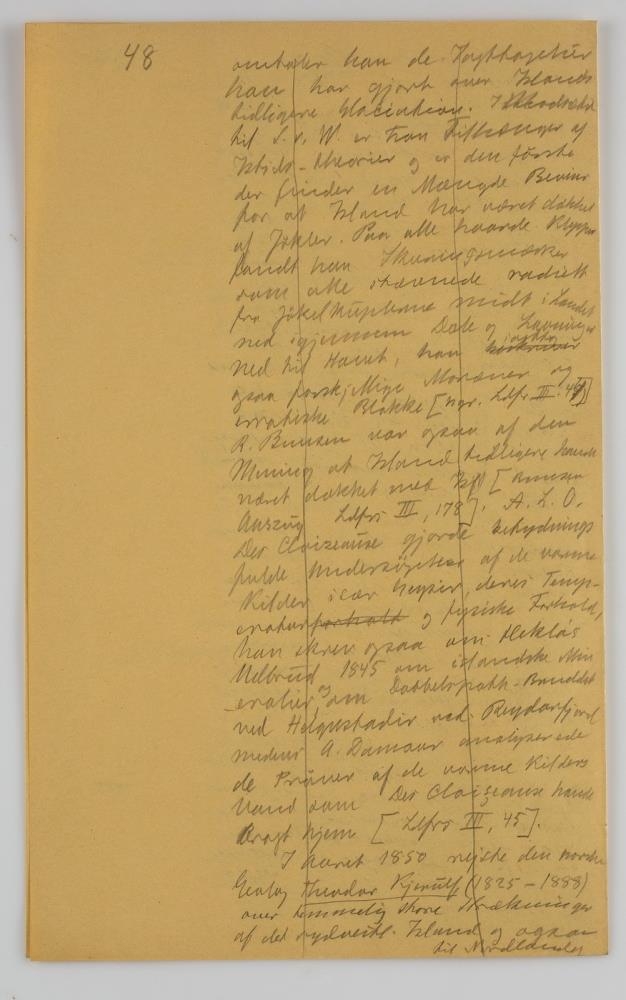 48
omtaler han de Iagttagelser
han har gjort over Islands
tidligere Glaciation. I Modsætn
til S. v. W. er han Tilhænger af
Istids-theorier og er den første
der finder en Mængde Beviser
for at Island har været dækket
af Jökler. Paa alle haarde Klipper
fandt han Skuringsmærker
som alle straalede radiært
fra Jökelkuplerne midt i Landet
ned igjennem Dale og Lavninger
ned til Havet, han
ogsaa forskjellige Moræner og
erratiske Blokke [ Lfrs III. 49]
R. Bunsen var ogsaa af den
Mening at Island tidligere havde
været dækket med Is [Bunsen
Auszug Ldfrs III, 178]. A. L. O.
Des Cloizeaux gjorde betydnings
fulde Undersøgelser af de varme
Kilder især Geysir, deres Temp-
eraturforhold og fysiske Forhold,
han skrev ogsaa om Heklas
Udbrud 1845 om islandske Min
eralier og om Dobbeltspath-Bruddet
ved Helgustadir ved Reydarfjord
medens A. Damour analyserede
de Prøver af de varme Kilders
Vand som Des Cloizeaux havde
bragt hjem [Ldfrs III, 45].
I Aaret 1850 rejste den norske
Geolog Theodor Kjerulf (1825-1888)
over temmelig store Strækninger
af det sydvestl. Island og ogsaa
til Nordlandet